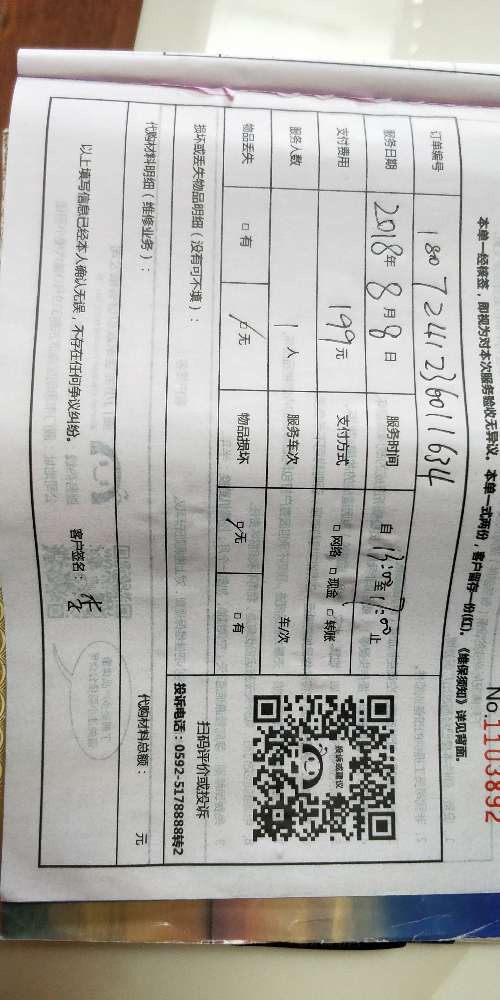 No.1103892
本单一经接签，即视为对本次服务验收无异议。本单一式两份，客户留存一份(红)。《维保须知》详见背面。
订单编号 1807241236011634
服务日期 2018年8月8日 服务时间 自13:00至17:00止
支付费用 199元 支付方式 □网络 □现金 □转账
服务人数 1人 服务车次 车/次
物品丢失 □有 □无 物品损坏 □无 □有
损坏或丢失物品明细（没有可不填）：
扫码评价或投诉
投诉电话：0592-5178888转2
投诉或建议
代购材料明细（维修业务）： 代购材料总额： 元
以上填写信息已经本人确认无误，不存在任何争议纠纷。 客户签名：